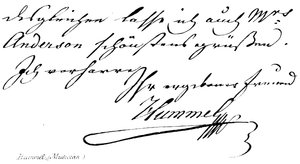 desgleichen lasse ich auch Mrs
Anderson schönstens grüßen.
Ich verharre
Ihr ergebener Freund
Hummel
Hummel (Musician)